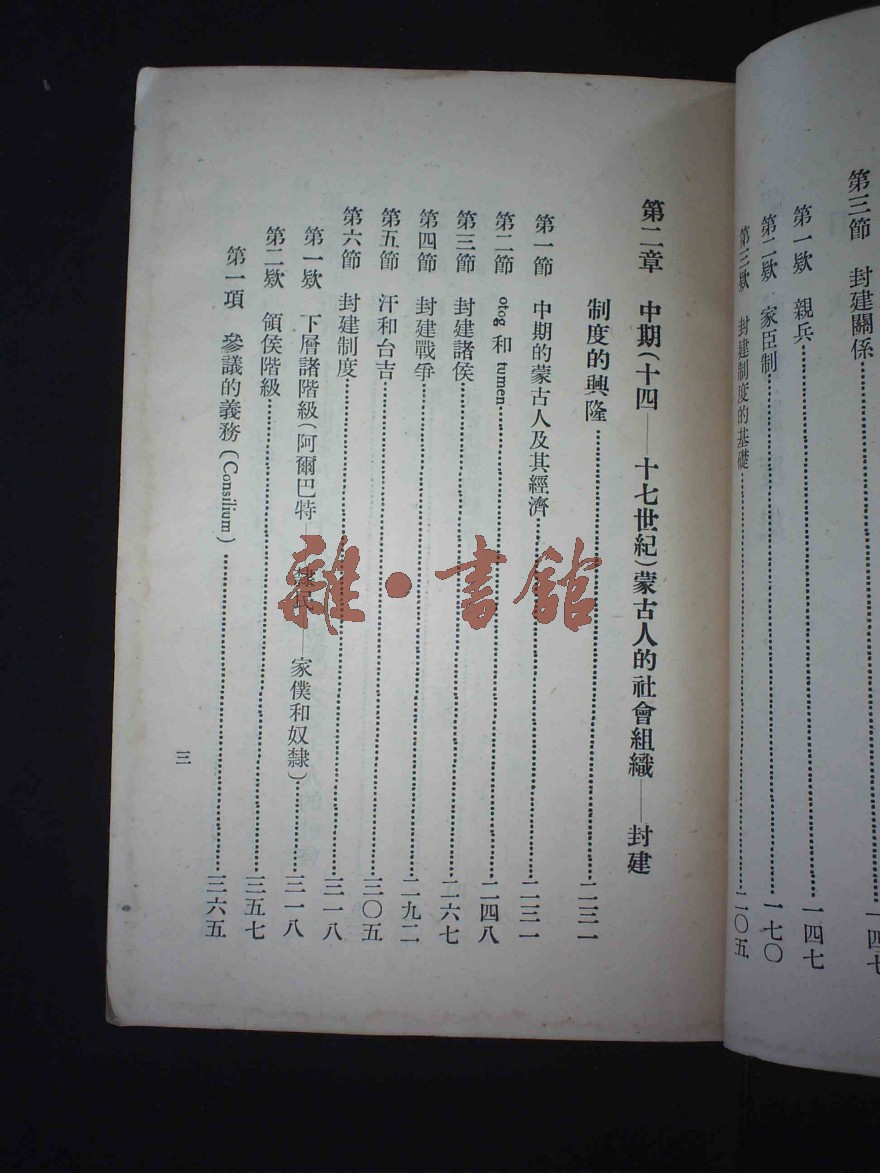 第三節　封建關係……一四七
第一欵　親兵……一四七
第二欵　家臣制……一七〇
第三欵　封建制度的基礎……二〇五
第二章　中期(十四——十七世紀)蒙古人的社會組織——封建
制度的興隆……二三一
第一節　中期的蒙古人及其經濟……二三一
第二節　otog 和 tumen……二四八
第三節　封建諸侯……二六七
第四節　封建戰爭……二九二
第五節　汗和台吉……三〇五
第六節　封建制度……三一八
第一欵　下層諸階級(阿爾巴特——隸民——家僕和奴隸)……三一八
第二欵　領侯階級……三五七
第一項　參議的義務(Consilium)……三六五
三
雜·書館